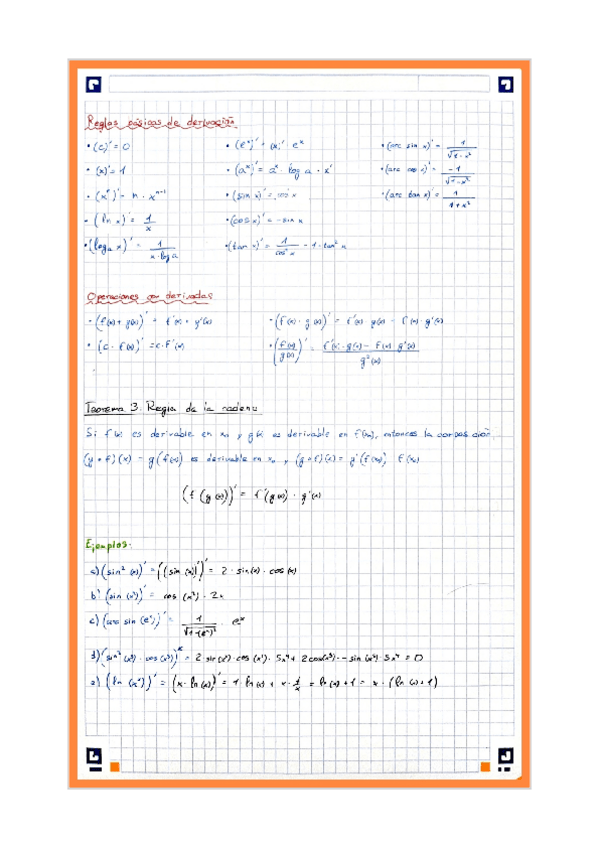 Reglas básicas de derivación
• (c)' = 0
• (x)' = 1
• (xⁿ)' = n · xⁿ⁻¹
• (ln x)' = 1/x
• (logₐ x)' = 1/(x · log a)
• (eˣ)' = (x)' · eˣ
• (aˣ)' = aˣ · log a · x'
• (sin x)' = cos x
• (cos x)' = -sin x
• (tan x)' = 1/cos² x = 1 + tan² x
• (arc sin x)' = 1/√(1-x²)
• (arc cos x)' = -1/√(1-x²)
• (arc tan x)' = 1/(1+x²)
Operaciones con derivadas
• (f(x) + g(x))' = f'(x) + g'(x)
• (c · f(x))' = c · f'(x)
• (f(x) · g(x))' = f'(x) · g(x) + f(x) · g'(x)
• (f(x)/g(x))' = (f'(x) · g(x) - f(x) · g'(x))/g²(x)
Teorema 3. Regla de la cadena
Si f(x) es derivable en x₀ y g(x) es derivable en f(x₀), entonces la composición
(g ∘ f)(x) = g(f(x)) es derivable en x₀ y (g ∘ f)'(x) = g'(f(x₀)) · f'(x₀)
(f(g(x)))' = f'(g(x)) · g'(x)
Ejemplos.
a) (sin² (x))' = ((sin (x))²)' = 2 · sin(x) · cos(x)
b) (sin (x²))' = cos (x²) · 2x
c) (arc sin (eˣ))' = 1/√(1-(eˣ)²) · eˣ
= 2 sin(x⁵) · cos(x⁵) · 5x⁴ + 2 cos(x⁵) · -sin(x⁵) · 5x⁴ = 0
e) (ln (xˣ))' = (x · ln(x))' = 1 · ln(x) + x · 1/x = ln(x) + 1 =